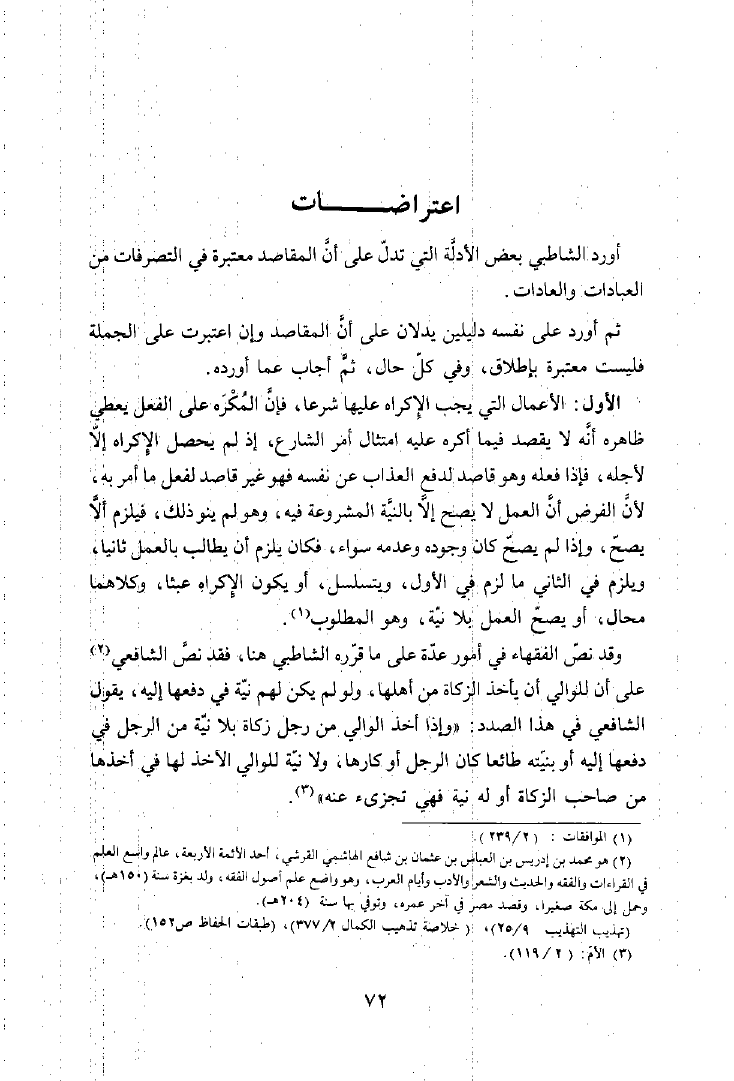 اعتراضـــــات
أورد الشاطبي بعض الأدلَّة التي تدلّ على أنَّ المقاصد معتبرة في التصرفات من
العبادات والعادات .
ثم أورد على نفسه دليلين يدلان على أنَّ المقاصد وإن اعتبرت على الجملة
فليست معتبرة بإطلاق، وفي كلّ حال، ثمَّ أجاب عما أورده.
الأول: الأعمال التي يجب الإكراه عليها شرعا، فإنَّ المُكْرَه على الفعل يعطي
ظاهره أنَّه لا يقصد فيما أكره عليه امتثال أمر الشارع، إذ لم يحصل الإكراه إلَّا
لأجله، فإذا فعله وهو قاصد لدفع العذاب عن نفسه فهو غير قاصد لفعل ما أمر به،
لأنَّ الفرض أنَّ العمل لا يصح إلَّا بالنيَّة المشروعة فيه، وهو لم ينو ذلك، فيلزم ألَّا
يصحّ، وإذا لم يصحّ كان وجوده وعدمه سواء، فكان يلزم أن يطالب بالعمل ثانيا،
ويلزم في الثاني ما لزم في الأول، ويتسلسل، أو يكون الإكراه عبثا، وكلاهما
محال، أو يصحّ العمل بلا نيّة، وهو المطلوب(١).
وقد نصّ الفقهاء في أمور عدّة على ما قرّره الشاطبي هنا، فقد نصَّ الشافعي(٢)
على أن للوالي أن يأخذ الزكاة من أهلها، ولو لم يكن لهم نيّة في دفعها إليه، يقول
الشافعي في هذا الصدد: «وإذا أخذ الوالي من رجل زكاة بلا نيّة من الرجل في
دفعها إليه أو بنيّته طائعا كان الرجل أو كارها، ولا نيّة للوالي الآخذ لها في أخذها
من صاحب الزكاة أو له نية فهي تجزىء عنه»(٣).
(١) الموافقات : (٢٣٩/٢).
(٢) هو محمد بن إدريس بن العباس بن عثمان بن شافع الهاشمي القرشي، أحد الأئمة الأربعة، عالم واسع العلم
في القراءات والفقه والحديث والشعر والأدب وأيام العرب، وهو واضع علم أصول الفقه، ولد بغزة سنة (١٥٠هـ)،
وحمل إلى مكة صغيرا، وقصد مصر في آخر عمره، وتوفي بها سنة (٢٠٤هـ).
(تهذيب التهذيب ٢٥/٩)، (خلاصة تذهيب الكمال ٣٧٧/٢)، (طبقات الحفاظ ص١٥٢).
(٣) الأم: (١١٩/٢).
٧٢